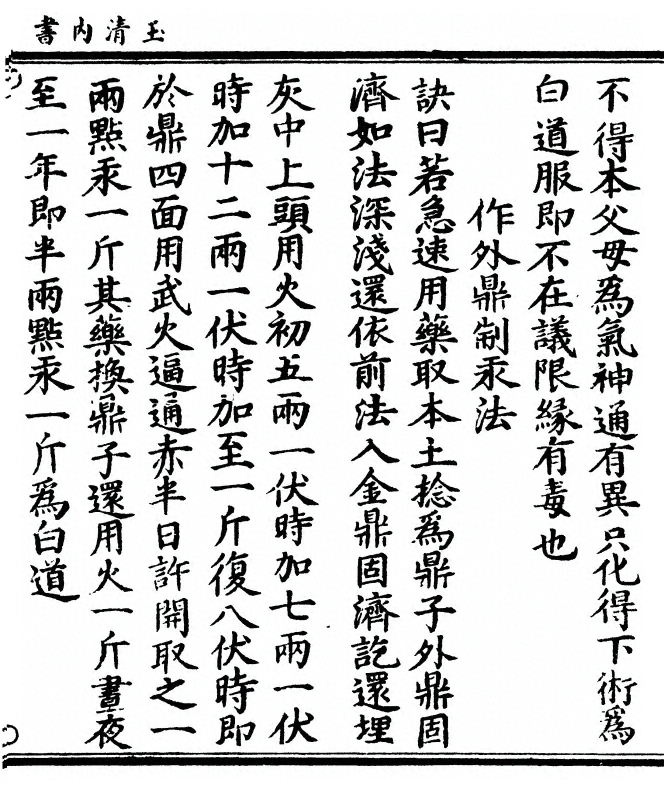 玉清內書
不得本父母為氣神通有異只化得下術為
白道服即不在議限緣有毒也
作外鼎制汞法
訣曰若急速用藥取本土捻為鼎子外鼎固
濟如法深淺還依前法入金鼎固濟訖還埋
灰中上頭用火初五兩一伏時加七兩一伏
時加十二兩一伏時加至一斤復八伏時即
於鼎四面用武火逼通赤半日許開取之一
兩點汞一斤其藥換鼎子還用火一斤晝夜
至一年即半兩點汞一斤為白道